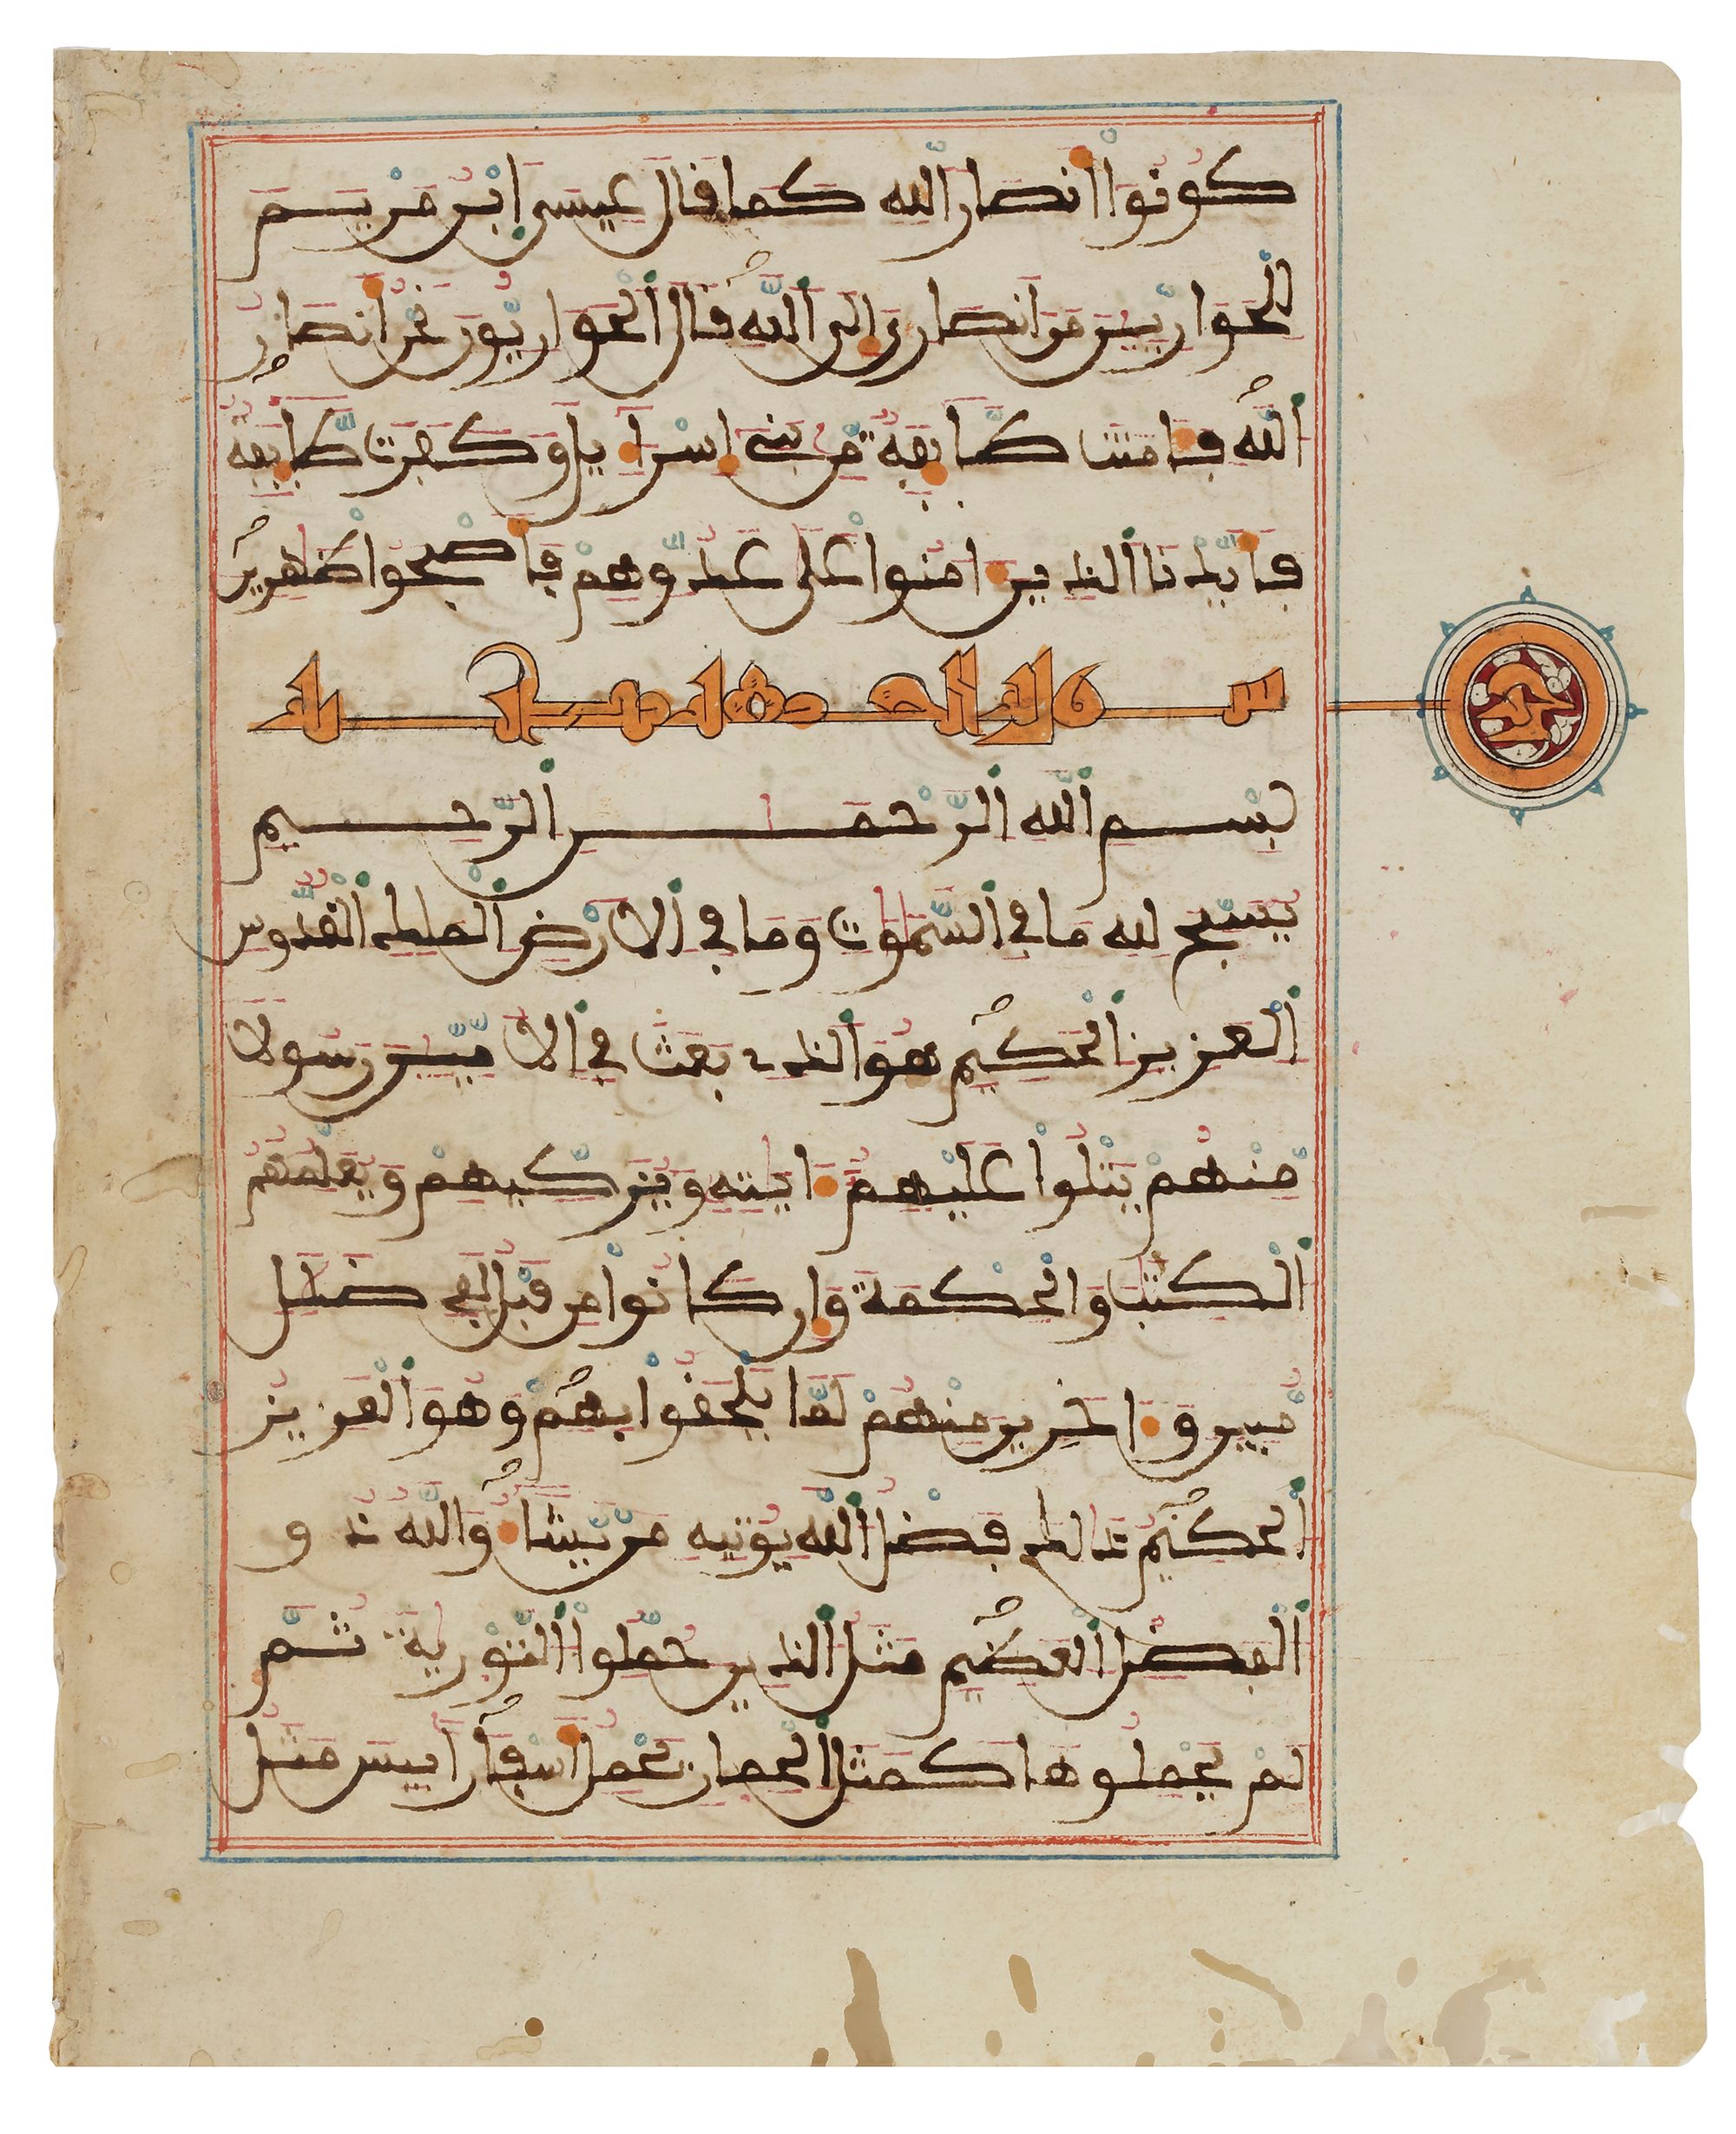 كونوا أنصارا لله كما قال عيسى ابن مريم
للحواريين من أنصاري إلى الله قال الحواريون نحن أنصار
الله فـامنت طايفة من بني إسراءيل وكفرت طايفة
فأيدنا الذين ءامنوا على عدوهم فأصبحوا ظهرين
سورة الجمعة احدى عشرة اية
بسم الله الرحمن الرحيم
يسبح لله ما في السموت وما في الارض الملك القدوس
العزيز الحكيم هو الذي بعث في الاميين رسولا
منهم يتلوا عليهم ءايته ويزكيهم ويعلمهم
الكتب والحكمة وإن كانوا من قبل لفي ضلل
مبين وءاخرين منهم لما يلحقوا بهم وهو العزيز
الحكيم ذلك فضل الله يوتيه من يشاء والله ذو
الفضل العظيم مثل الذين حملوا التورية ثم
لم يحملوها كمثل الحمار يحمل أسفارا بيس مثل